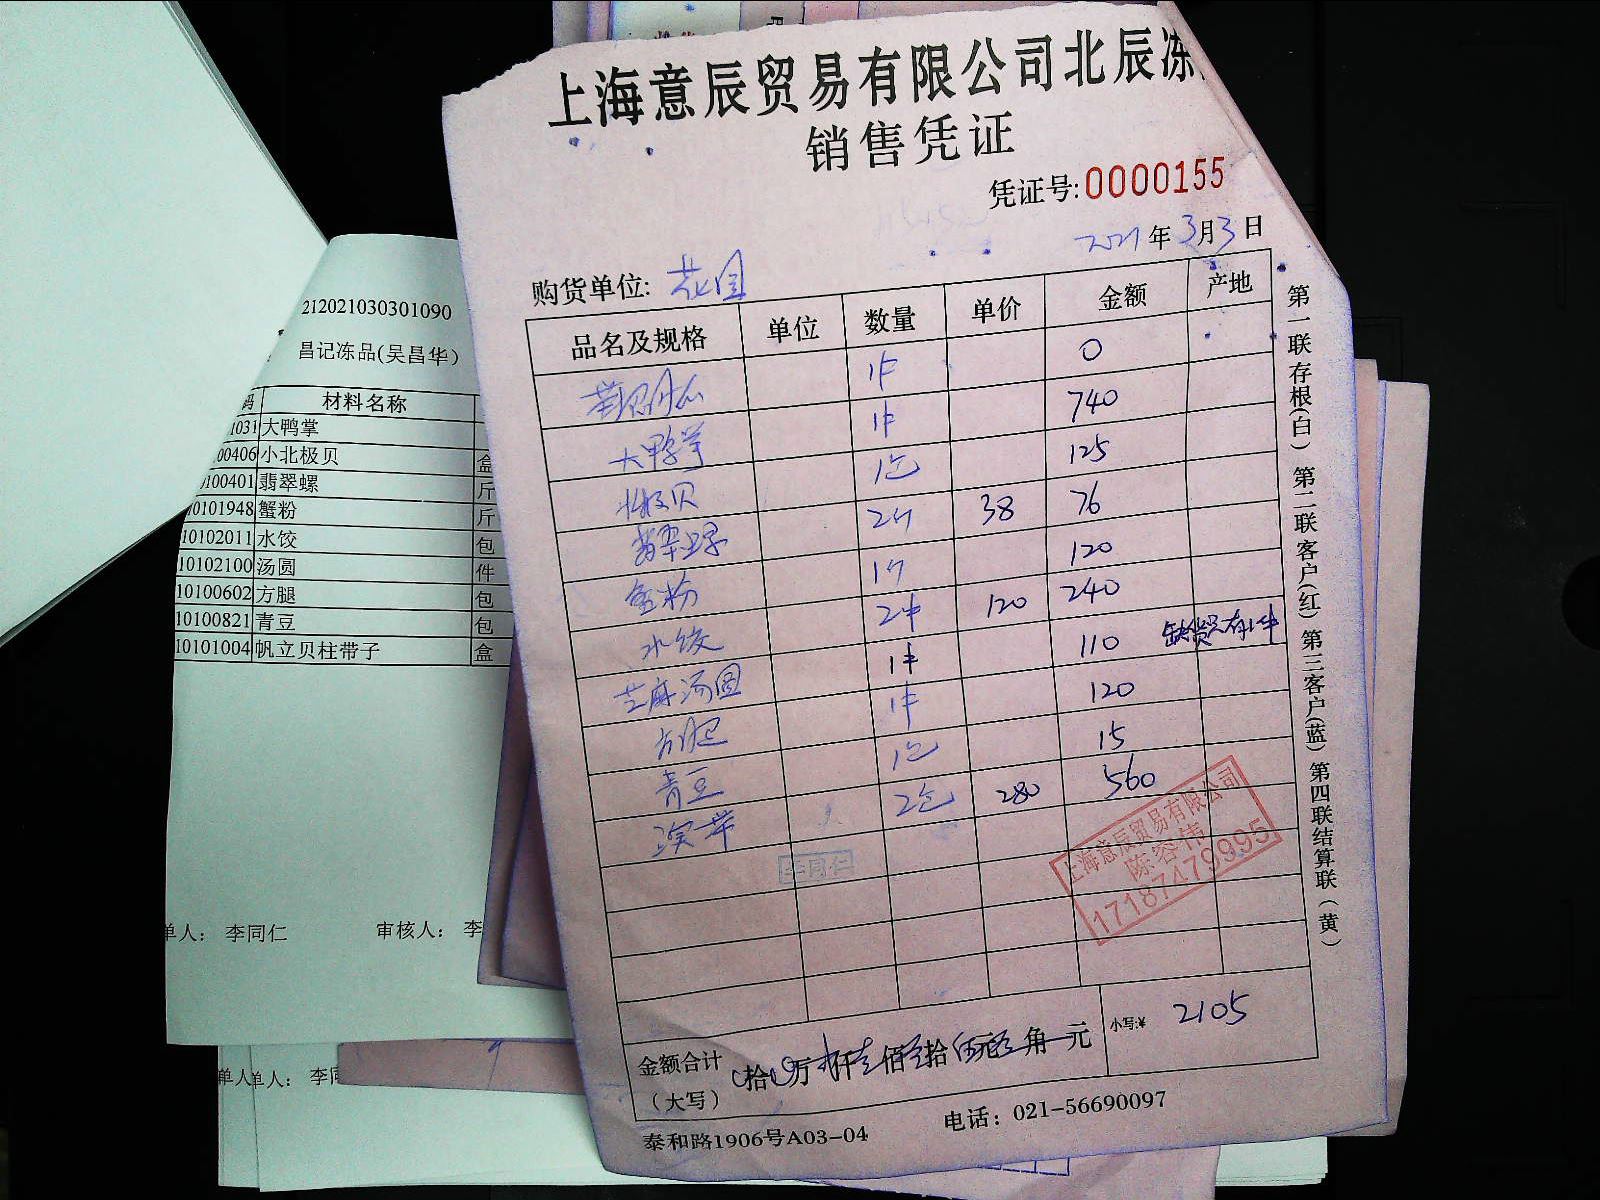 上海意辰贸易有限公司北辰冻
销售凭证
凭证号:0000155
2021年3月3日
购货单位: 花园
品名及规格 单位 数量 单价 金额 产地
1件 0
大鸭掌 1件 740
北极贝 1包 125
翡翠螺 2斤 38 76
蟹粉 1斤 120
水饺 2件 120 240
芝麻汤圆 1件 110 缺货只有1件
方腿 1件 120
青豆 1包 15
2包 280 560
李同仁
上海意辰贸易有限公司
陈容伟
17187479995
金额合计
(大写)
拾 万 仟 佰 拾 元 角 元
小写:¥ 2105
泰和路1906号A03-04 电话: 021-56690097
第一联存根(白) 第二联客户(红) 第三客户(蓝) 第四联结算联(黄)
212021030301090
昌记冻品(吴昌华)
码 材料名称
1031 大鸭掌
00406 小北极贝 盒
0100401 翡翠螺 斤
10101948 蟹粉 斤
10102011 水饺 包
10102100 汤圆 件
10100602 方腿 包
10100821 青豆 包
10101004 帆立贝柱带子 盒
单人: 李同仁 审核人: 李
单人: 单人: 李同